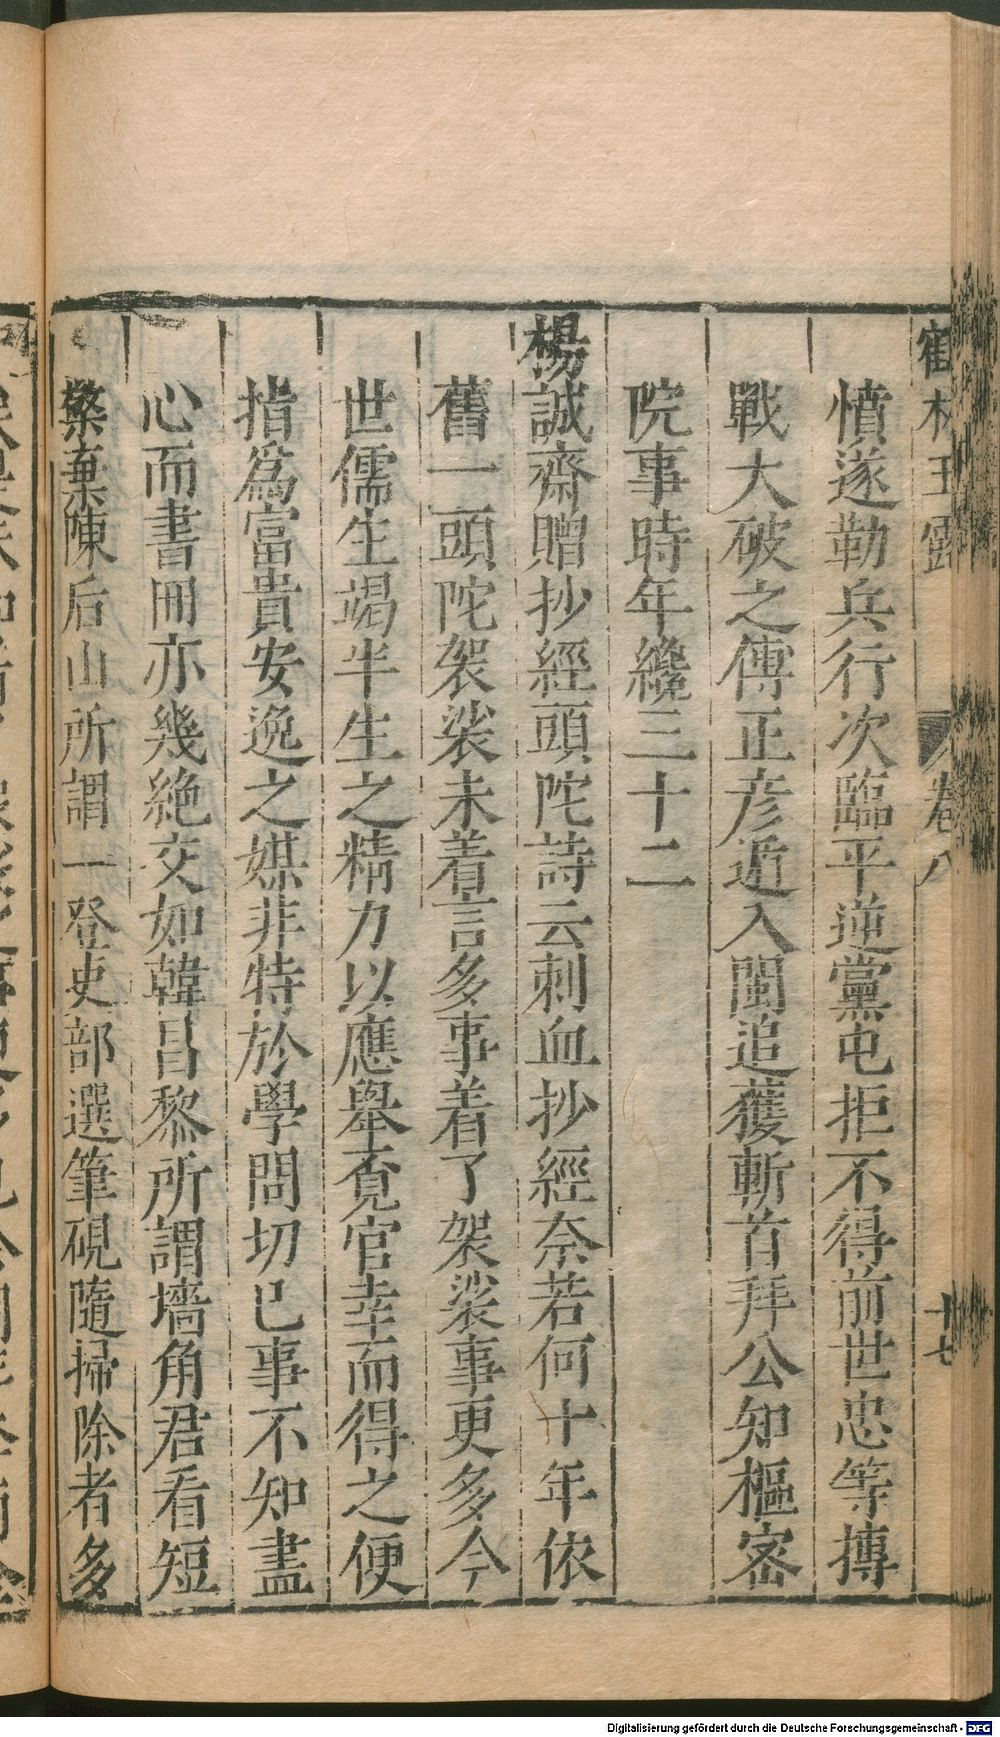 鶴林玉露 卷八 十七
憤遂勒兵行次臨平逆黨屯拒不得前世忠等搏
戰大破之傅正彦遁入閩追獲斬首拜公知樞密
院事時年纔三十二
楊誠齋贈抄經頭陀詩云刺血抄經奈若何十年依
舊一頭陀袈裟未着言多事着了袈裟事更多今
世儒生竭半生之精力以應舉覔官幸而得之便
指爲富貴安逸之媒非特於學問切己事不知盡
心而書冊亦幾絶交如韓昌黎所謂墻角君看短
檠棄陳后山所謂一登吏部選筆硯隨掃除者多
Digitalisierung gefördert durch die Deutsche Forschungsgemeinschaft - DFG